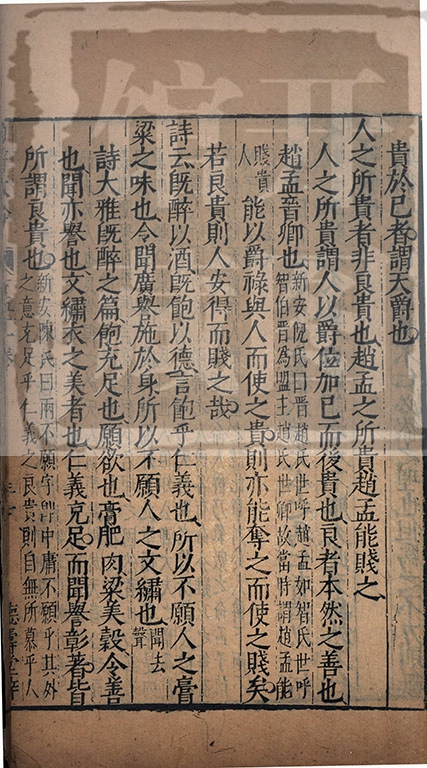 貴於己者謂天爵也
人之所貴者非良貴也趙孟之所貴趙孟能賤之
人之所貴謂人以爵位加己而後貴也良者本然之善也
趙孟晉卿也新安倪氏曰晉趙氏世呼趙孟如智氏世呼
智伯晉為盟主趙氏世卿故當時謂趙孟能
賤貴
人能以爵祿與人而使之貴則亦能奪之而使之賤矣
若良貴則人安得而賤之哉
詩云既醉以酒既飽以德言飽乎仁義也所以不願人之膏
粱之味也令聞廣譽施於身所以不願人之文繡也聞去
聲
詩大雅既醉之篇飽充足也願欲也膏肥肉粱美穀令善
也聞亦譽也文繡衣之美者也仁義充足而聞譽彰著皆
所謂良貴也新安陳氏曰兩不願字即中庸不願乎其外
之意充足乎仁義之良貴則自無所慕乎人
德壽堂梓